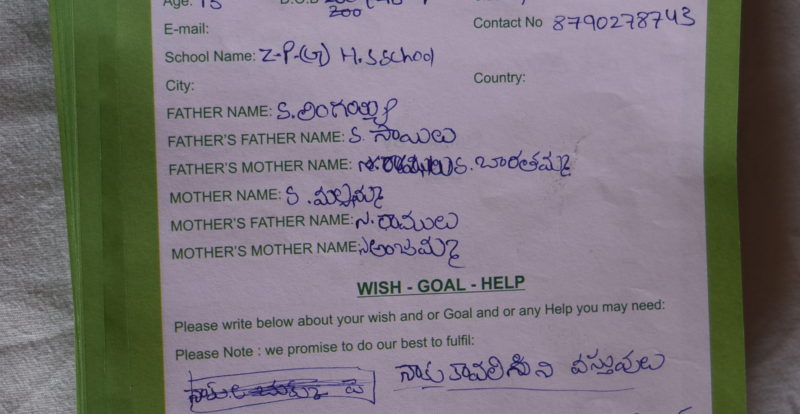 Age: 13 D.O.B
200
E-mail: Contact No 8790278743
School Name: Z-P-(G) H.S school
City: Country:
FATHER NAME: S. లింగయ్య
FATHER'S FATHER NAME: S. సాయిలు
FATHER'S MOTHER NAME: S. భారతమ్మ
MOTHER NAME: S. మల్లమ్మ
MOTHER'S FATHER NAME: N. రాములు
MOTHER'S MOTHER NAME: N అంజమ్మ
WISH - GOAL - HELP
Please write below about your wish and or Goal and or any Help you may need:
Please Note : we promise to do our best to fulfil:
నాకు కావలిసిని వస్తువులు